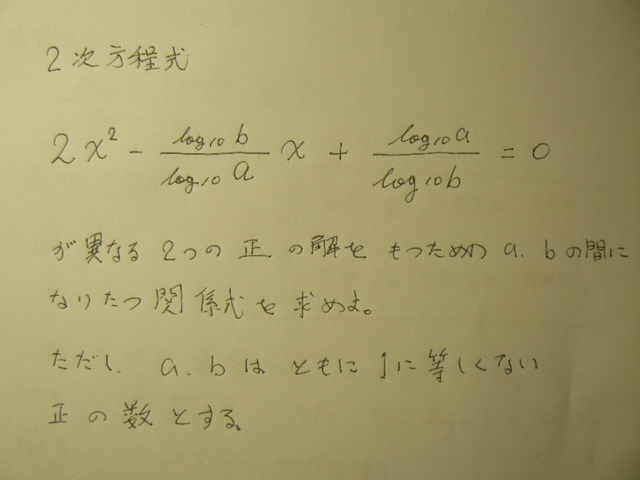 2次方程式
2x² - \frac{log₁₀b}{log₁₀a} x + \frac{log₁₀a}{log₁₀b} = 0
が異なる2つの正の解をもつためのa.bの間に
なりたつ関係式を求めよ。
ただし、a.bはともに1に等しくない
正の数とする。